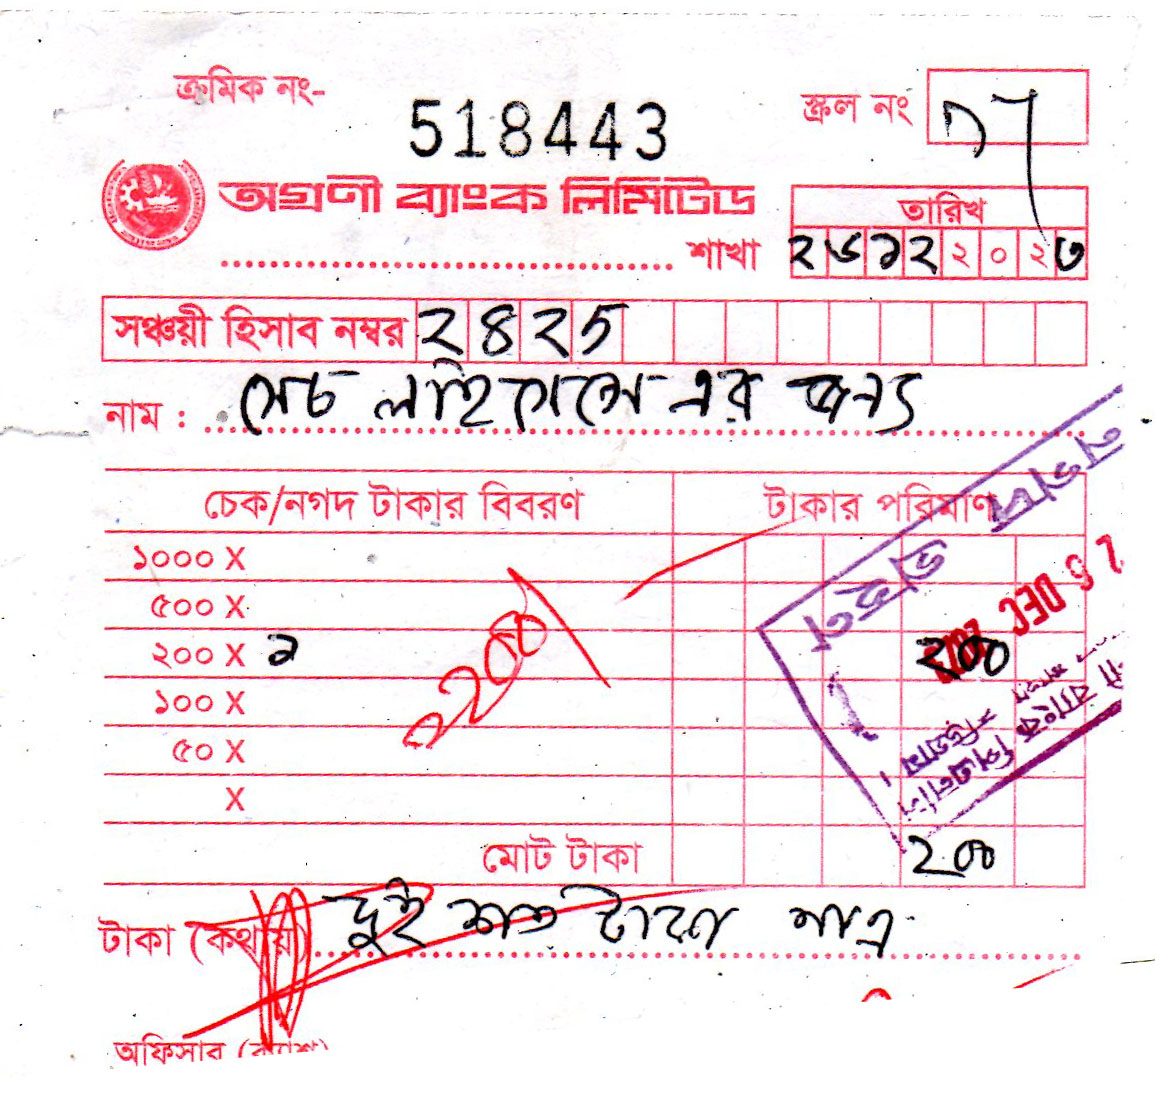 ক্রমিক নং-
518443
স্ক্রল নং
অগ্রণী ব্যাংক লিমিটেড
তারিখ
শাখা
২৬১২২০২৩
সঞ্চয়ী হিসাব নম্বর ২৪২৫
নাম : সেচ লাইসেন্সে এর জন্য
চেক/নগদ টাকার বিবরণ টাকার পরিমাণ
১০০০ X
৫০০ X
২০০ X ১ ২০০
১০০ X
৫০ X
X
মোট টাকা ২০০
টাকা (কথায়) দুই শত টাকা মাত্র
অফিসার
নগদ গ্রহণ
26 DEC